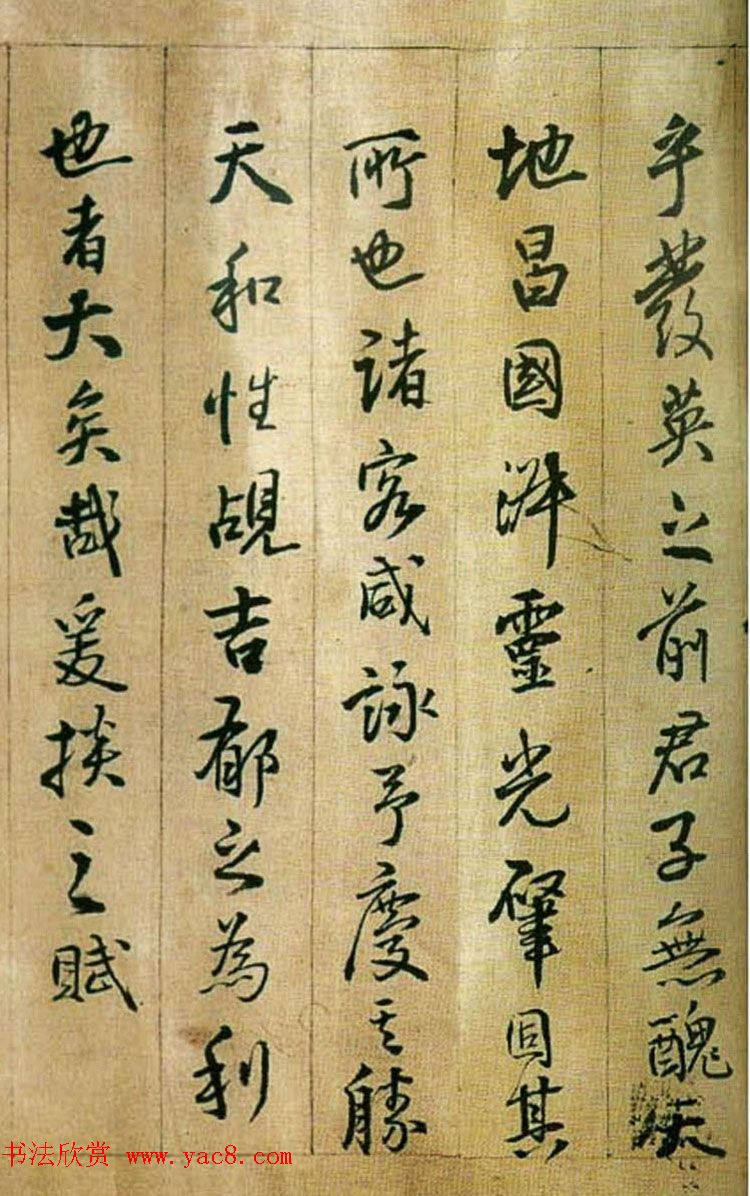 乎發英之前君子無醜
地昌國湃靈光肇固其
所也諸客咸詠予慶其勝
天和性覘吉郁之為利
也者大矣哉爰掞之賦
书法欣赏 www.yac8.com